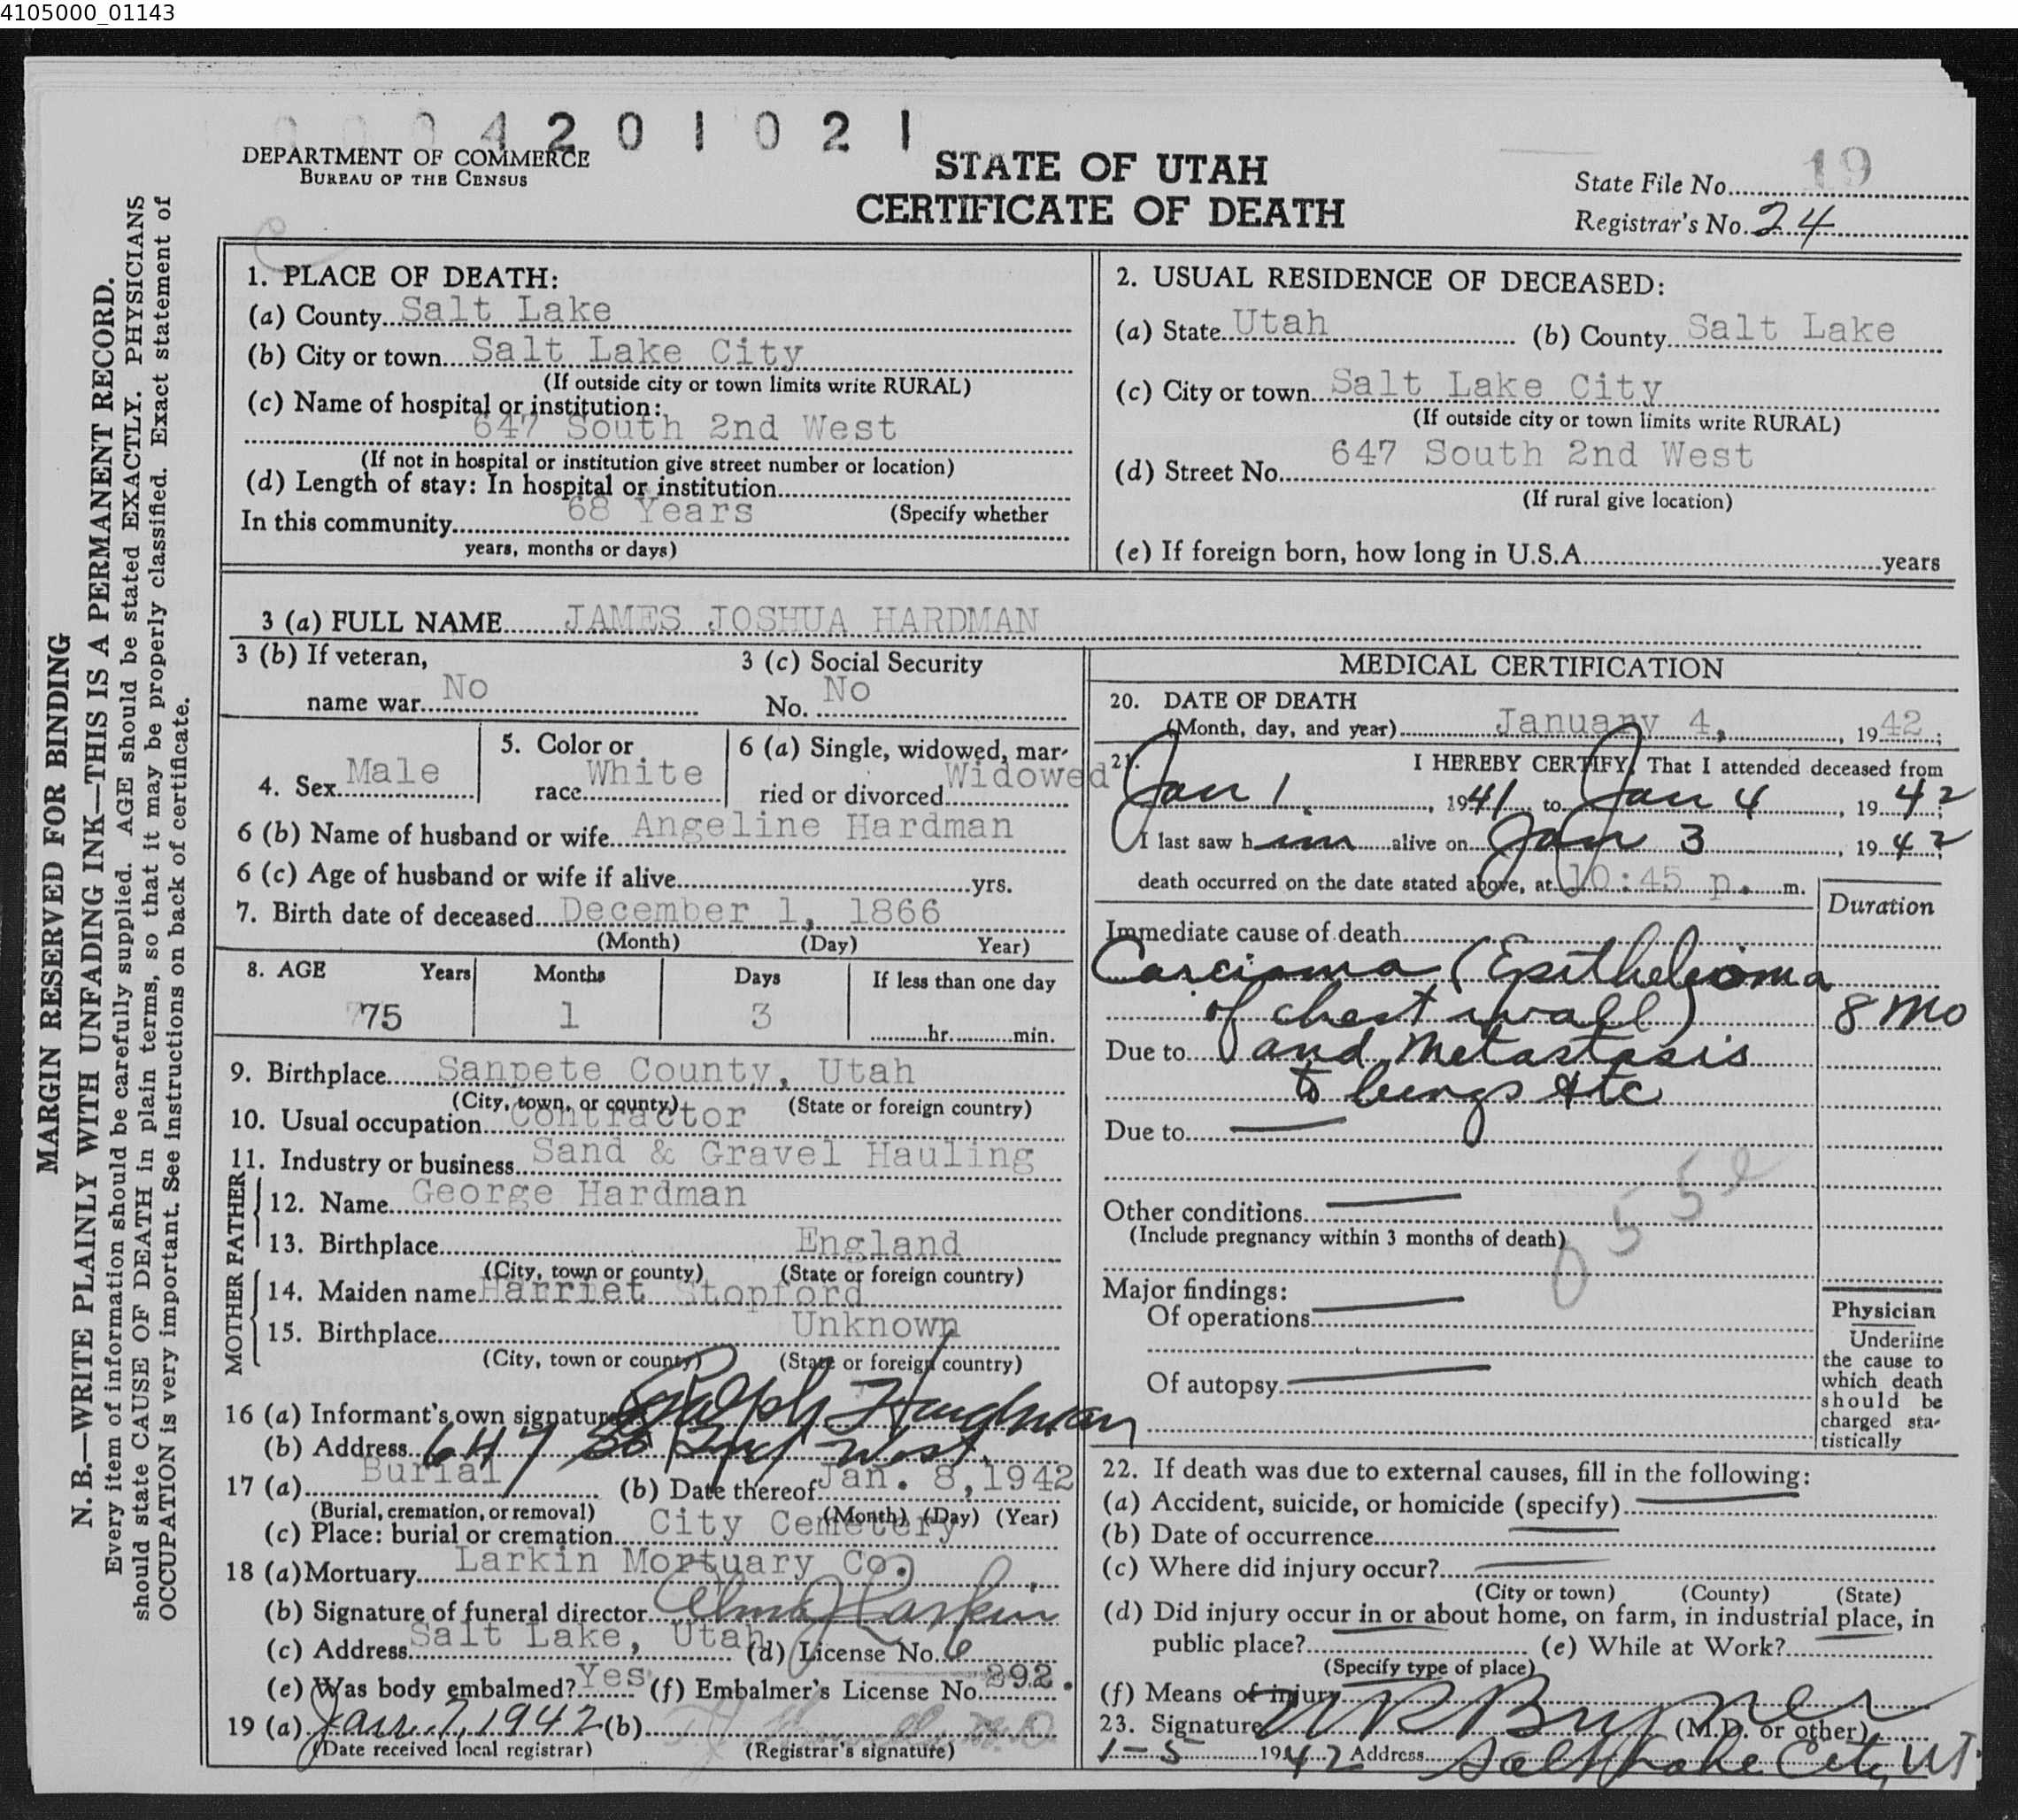 4105000_01143
0004201021
DEPARTMENT OF COMMERCE
BUREAU OF THE CENSUS
STATE OF UTAH
CERTIFICATE OF DEATH
State File No. 19
Registrar's No. 24
MARGIN RESERVED FOR BINDING
N. B.—WRITE PLAINLY WITH UNFADING INK—THIS IS A PERMANENT RECORD.
Every item of information should be carefully supplied. AGE should be stated EXACTLY. PHYSICIANS
should state CAUSE OF DEATH in plain terms, so that it may be properly classified. Exact statement of
OCCUPATION is very important. See instructions on back of certificate.
1. PLACE OF DEATH:
(a) County Salt Lake
(b) City or town Salt Lake City
(If outside city or town limits write RURAL)
(c) Name of hospital or institution:
647 South 2nd West
(If not in hospital or institution give street number or location)
(d) Length of stay: In hospital or institution
In this community 68 Years (Specify whether
years, months or days)
2. USUAL RESIDENCE OF DECEASED:
(a) State Utah (b) County Salt Lake
(c) City or town Salt Lake City
(If outside city or town limits write RURAL)
(d) Street No. 647 South 2nd West
(If rural give location)
(e) If foreign born, how long in U.S.A. years
3 (a) FULL NAME JAMES JOSHUA HARDMAN
3 (b) If veteran,
name war No
3 (c) Social Security
No. No
4. Sex Male
5. Color or
race White
6 (a) Single, widowed, mar-
ried or divorced Widowed
6 (b) Name of husband or wife Angeline Hardman
6 (c) Age of husband or wife if alive yrs.
7. Birth date of deceased December 1, 1866
(Month) (Day) Year)
8. AGE Years Months Days If less than one day
75 1 3 hr. min.
9. Birthplace Sanpete County, Utah
(City, town, or county) (State or foreign country)
10. Usual occupation Contractor
11. Industry or business Sand & Gravel Hauling
FATHER
12. Name George Hardman
13. Birthplace England
(City, town or county) (State or foreign country)
MOTHER
14. Maiden name Harriet Stopford
15. Birthplace Unknown
(City, town or county) (State or foreign country)
16 (a) Informant's own signature Ralph Hardman
(b) Address 647 So 2nd West
17 (a) Burial (b) Date thereof Jan. 8, 1942
(Burial, cremation, or removal) (Month) (Day) (Year)
(c) Place: burial or cremation City Cemetery
18 (a) Mortuary Larkin Mortuary Co.
(b) Signature of funeral director Alma J Larkin
(c) Address Salt Lake, Utah (d) License No. 6
(e) Was body embalmed? Yes (f) Embalmer's License No. 292.
19 (a) Jan. 7, 1942 (b)
(Date received local registrar) (Registrar's signature)
MEDICAL CERTIFICATION
20. DATE OF DEATH
(Month, day, and year) January 4, 1942;
21. I HEREBY CERTIFY, That I attended deceased from
Jan 1, 1941 to Jan 4, 1942;
I last saw him alive on Jan 3, 1942;
death occurred on the date stated above, at 10:45 p. m.
Duration
Immediate cause of death
Carcioma (Epithelioma
of chest wall) 8 mo
Due to and Metastasis
to lungs etc
Due to
Other conditions
(Include pregnancy within 3 months of death)
055
Major findings:
Of operations
Of autopsy
Physician
Underline
the cause to
which death
should be
charged sta-
tistically
22. If death was due to external causes, fill in the following:
(a) Accident, suicide, or homicide (specify)
(b) Date of occurrence
(c) Where did injury occur?
(City or town) (County) (State)
(d) Did injury occur in or about home, on farm, in industrial place, in
public place? (e) While at Work?
(Specify type of place)
(f) Means of injury
23. Signature (M.D. or other)
1-5 1942 Address Salt Lake City, UT